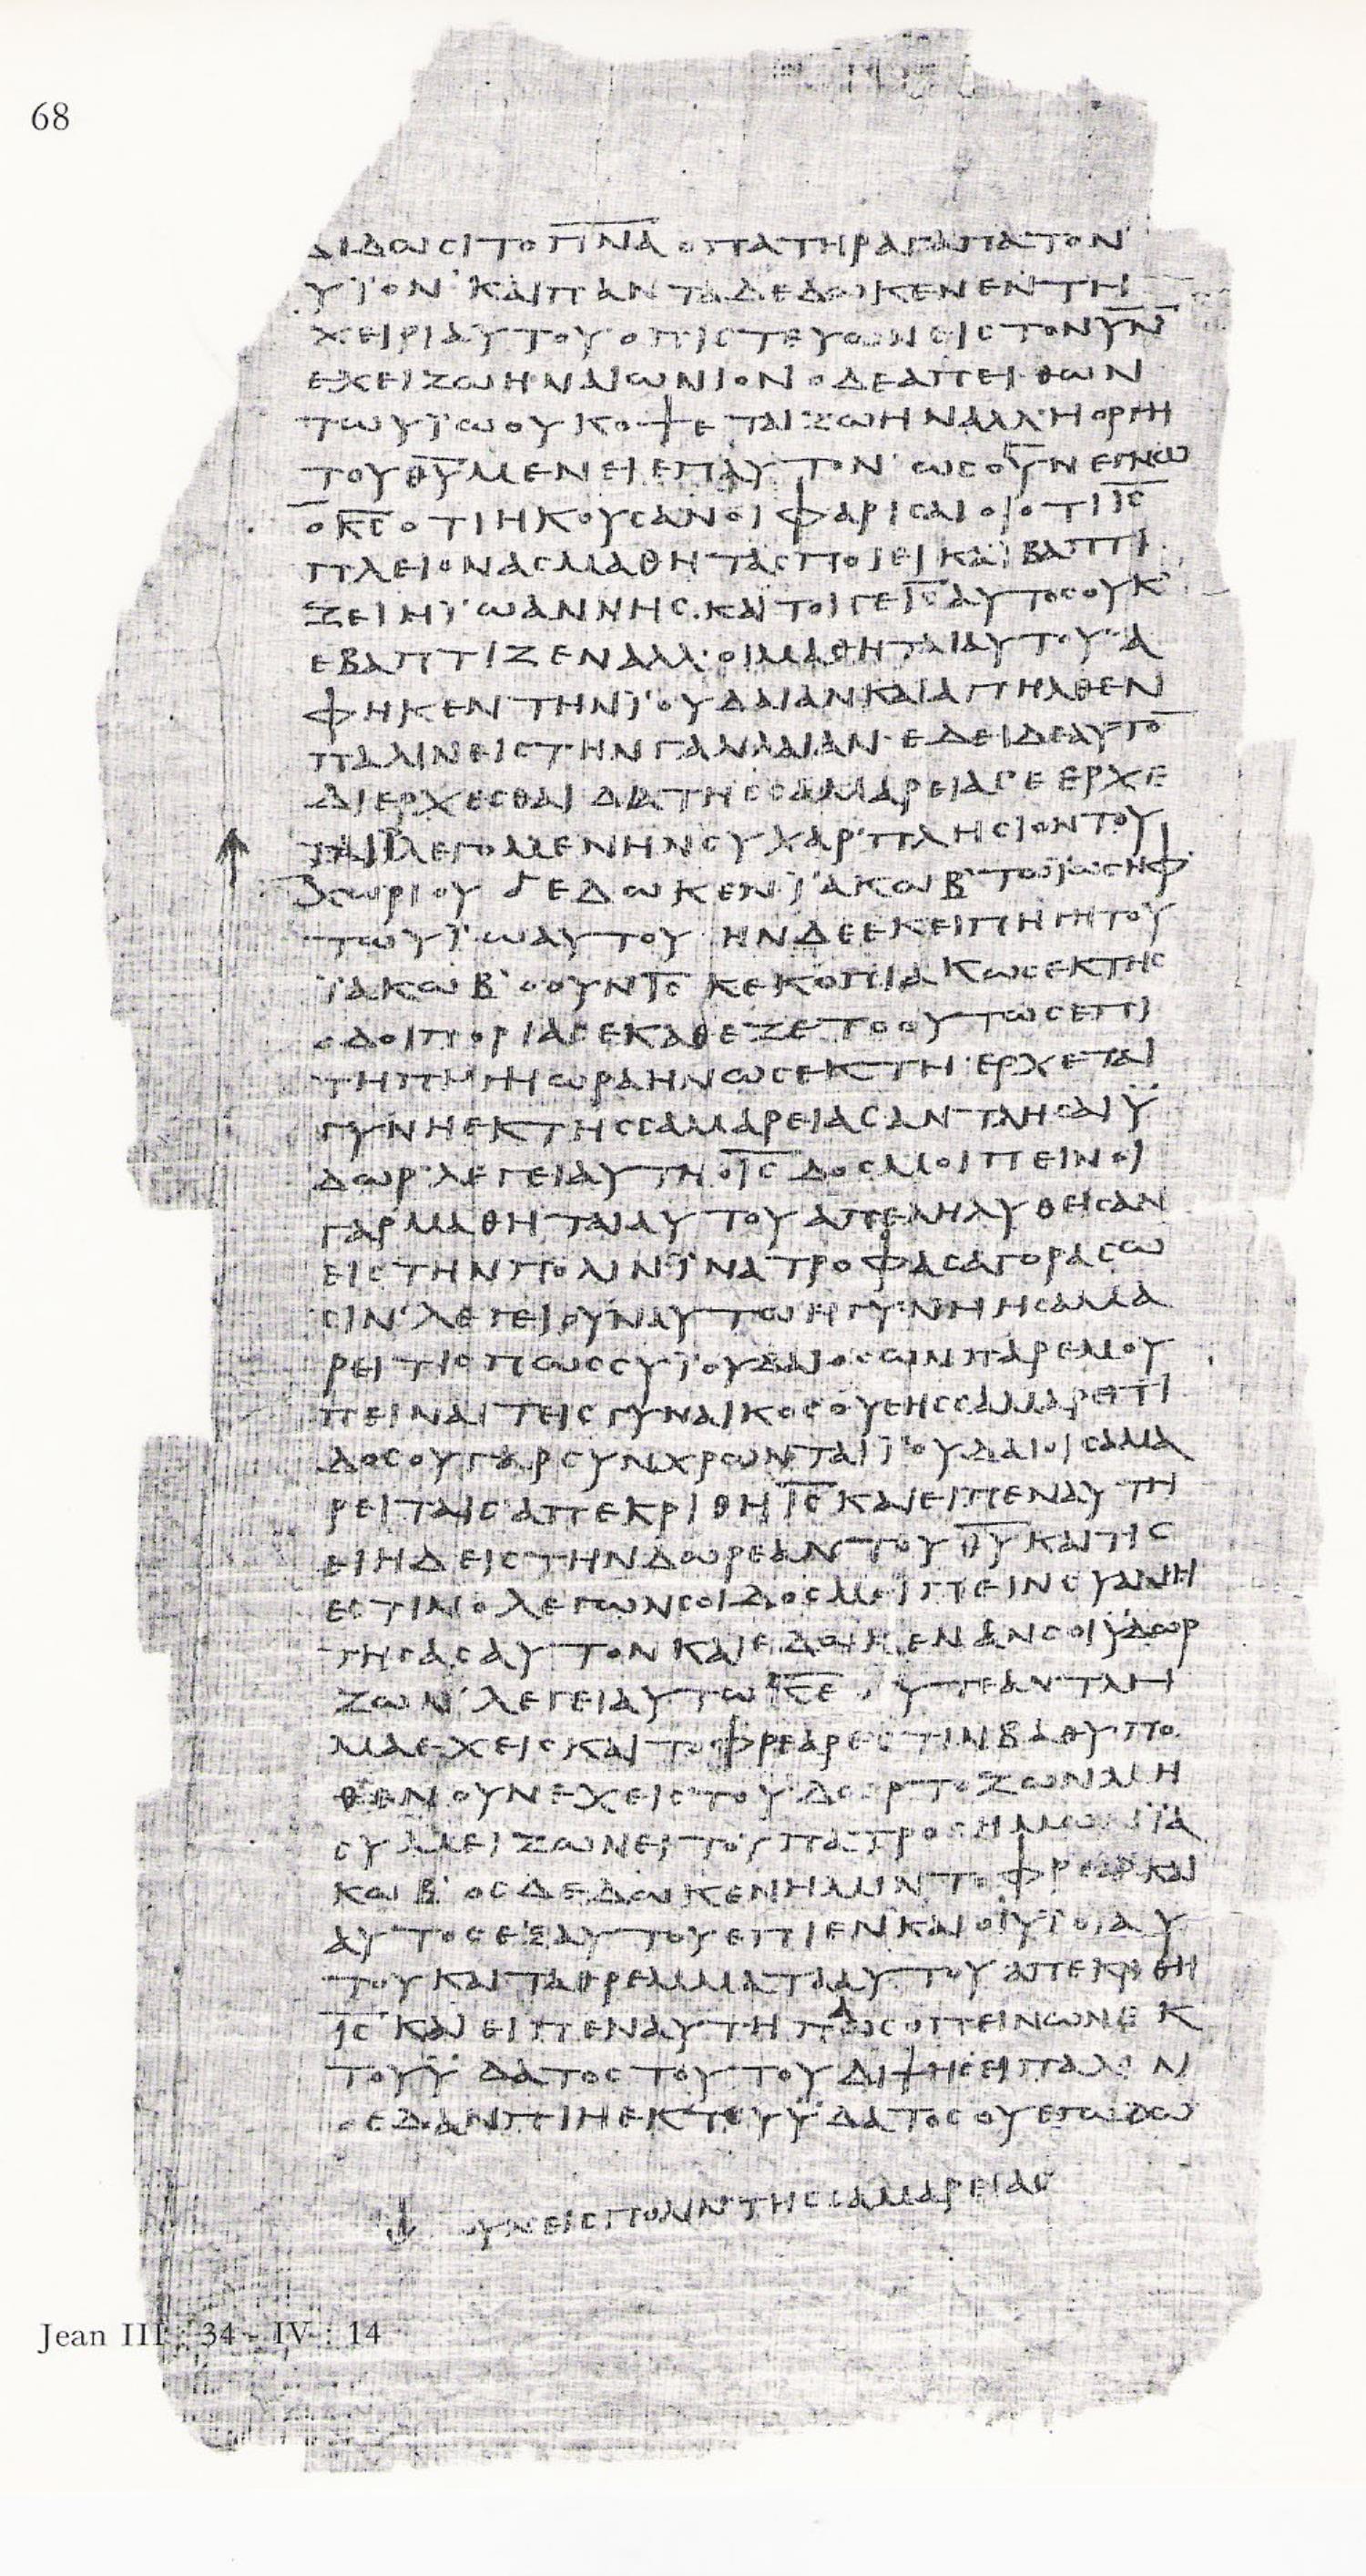 68
ΔΙΔΩСΙΤΟΠ̅Ν̅Α̅ ΟΠΑΤΗΡΑΓΑΠΑΤΟΝ
ΥΪΟΝ ΚΑΙΠΑΝΤΑΔΕΔΩΚΕΝΕΝΤΗ
ΧΕΙΡΙΑΥΤΟΥΟΠΙСΤΕΥΩΝΕΙСΤΟΝΥ̅Ν̅
ΕΧΕΙΖΩΗΝΑΙΩΝΙΟΝ ΟΔΕΑΠΕΙΘΩΝ
ΤΩΥΪΩΟΥΚΟΨΕΤΑΙΖΩΗΝΑΛΛΗΟΡΓΗ
ΤΟΥΘ̅Υ̅ΜΕΝΕΙΕΠΑΥΤΟΝ· ΩСΟΥΝΕΓΝΩ
ΟΚ̅С̅ΟΤΙΗΚΟΥСΑΝΟΙΦΑΡΙСΑΙΟΙΟΤΙΙ̅С̅
ΠΛΕΙΟΝΑСΜΑΘΗΤΑСΠΟΙΕΙΚΑΙΒΑΠΤΙ
ΖΕΙΗΪΩΑΝΝΗС·ΚΑΙΤΟΙΓΕΙ̅С̅ΑΥΤΟСΟΥΚ
ΕΒΑΠΤΙΖΕΝΑΛΛ·ΟΙΜΑΘΗΤΑΙΑΥΤΟΥ·Α
ΦΗΚΕΝΤΗΝΪΟΥΔΑΙΑΝΚΑΙΑΠΗΛΘΕΝ
ΠΑΛΙΝΕΙСΤΗΝΓΑΛΙΛΑΙΑΝ·ΕΔΕΙΔΕΑΥΤΟ̅
ΔΙΕΡΧΕСΘΑΙΔΙΑΤΗССΑΜΑΡΕΙΑС ΕΡΧΕ
ΛΕΓΟΜΕΝΗΝСΥΧΑΡ·ΠΛΗСΙΟΝΤΟΥ
ΧΩΡΙΟΥ ΕΔΩΚΕΝΪΑΚΩΒ ΤΩΪΩСΗΦ
ΤΩΥΪΩΑΥΤΟΥ ΗΝΔΕΕΚΕΙΠΗΓΗΤΟΥ
ΪΑΚΩΒ ΟΟΥΝΙ̅С̅ ΚΕΚΟΠΙΑΚΩСΕΚΤΗС
ΟΔΟΙΠΟΡΙΑСΕΚΑΘΕΖΕΤΟΟΥΤΩСΕΠΙ
ΤΗΠΗΓΗΩΡΑΗΝΩСΕΚΤΗ·ΕΡΧΕΤΑΙ
ΓΥΝΗΕΚΤΗССΑΜΑΡΕΙΑСΑΝΤΛΗСΑΙΫ
ΔΩΡ·ΛΕΓΕΙΑΥΤΗΟΙ̅С̅ΔΟСΜΟΙΠΕΙΝΟΙ
ΓΑΡΜΑΘΗΤΑΙΑΥΤΟΥΑΠΕΛΗΛΥΘΕΙСΑΝ
ΕΙСΤΗΝΠΟΛΙΝΪΝΑΤΡΟΦΑСΑΓΟΡΑСΩ
СΙΝ·ΛΕΓΕΙΟΥΝΑΥΤΩΗΓΥΝΗΗСΑΜΑ
ΡΕΙΤΙСΠΩССΥΪΟΥΔΑΙΟСΩΝΠΑΡΕΜΟΥ
ΠΕΙΝΑΙΤΕΙСΓΥΝΑΙΚΟСΟΥСΗССΑΜΑΡΕΙΤΙ
ΔΟСΟΥΓΑΡСΥΝΧΡΩΝΤΑΙΪΟΥΔΑΙΟΙСΑΜΑ
ΡΕΙΤΑΙСΑΠΕΚΡΙΘΗΙ̅С̅ΚΑΙΕΙΠΕΝΑΥΤΗ
ΕΙΗΔΕΙСΤΗΝΔΩΡΕΑΝΤΟΥΘ̅Υ̅ΚΑΙΤΙС
ΕСΤΙΝΟΛΕΓΩΝСΟΙΔΟСΜΟΙΠΕΙΝСΥΑΝΗ
ΤΗСΑСΑΥΤΟΝΚΑΙΕΔΩΚΕΝΑΝСΟΙΫΔΩΡ
ΖΩΝ·ΛΕΓΕΙΑΥΤΩ Κ̅Ε̅ ΟΥΤΕΑΝΤΛΗ
ΜΑΕΧΕΙСΚΑΙΤΟΦΡΕΑΡΕСΤΙΝΒΑΘΥΠΟ
ΘΕΝΟΥΝΕΧΕΙСΤΟΫΔΩΡΤΟΖΩΝΜΗ
СΥΜΕΙΖΩΝΕΙΤΟΥΠΑΤΡΟСΗΜΩΝΪΑ
ΚΩΒ·ΟСΔΕΔΩΚΕΝΗΜΙΝΤΟΦΡΕΑΡΚΑΙ
ΑΥΤΟСΕΞΑΥΤΟΥΕΠΙΕΝΚΑΙΟΙΥΪΟΙΑΥ
ΤΟΥΚΑΙΤΑΘΡΕΜΜΑΤΑΑΥΤΟΥΑΠΕΚΡΙΘΗ
Ι̅С̅ΚΑΙΕΙΠΕΝΑΥΤΗΠΑСΟΠΕΙΝΩΝΕΚ
ΤΟΥΫΔΑΤΟСΤΟΥΤΟΥΔΙΨΗСΕΙΠΑΛΙΝ
ΟСΔΑΝΠΙΗΕΚΤΟΥΫΔΑΤΟСΟΥΕΓΩΔΩ
ΟΥΝΕΙСΠΟΛΙΝΤΗССΑΜΑΡΕΙΑС
Jean III : 34 - IV : 14